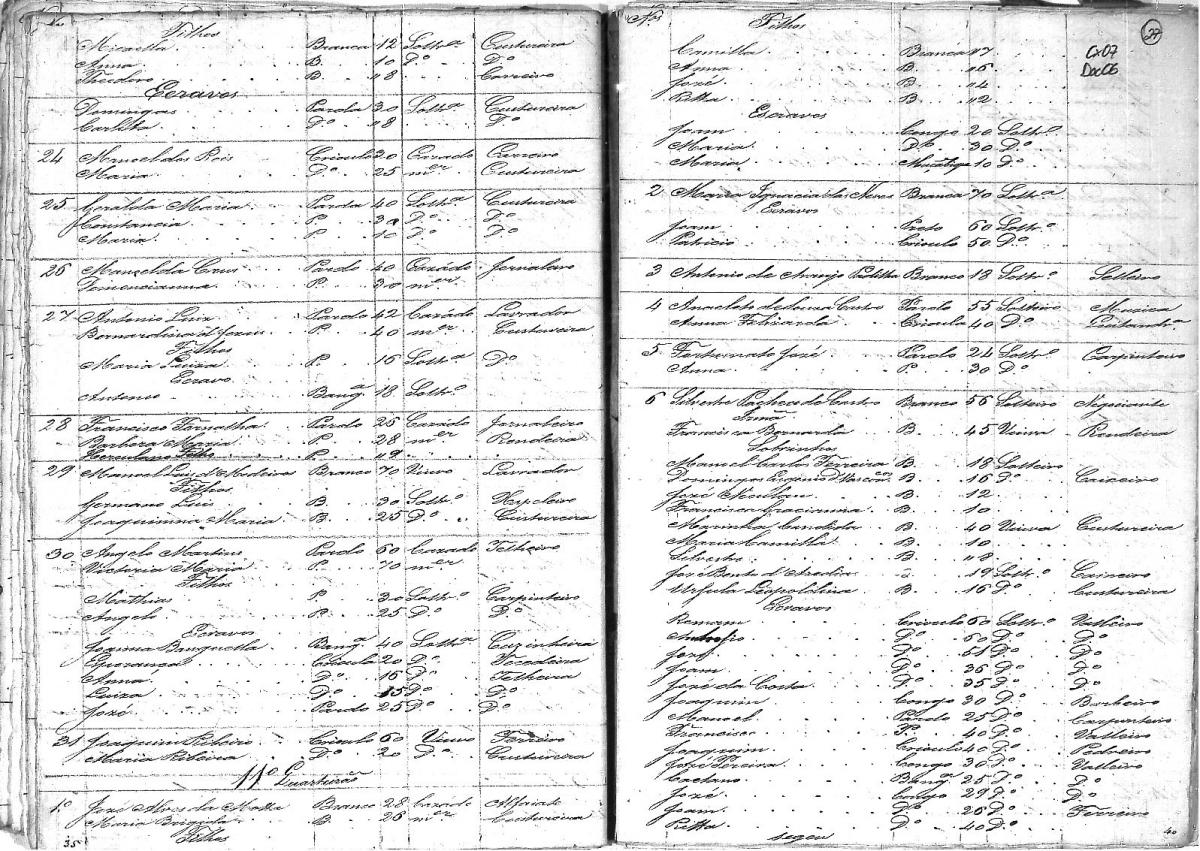 Nos
Filhos
Micaella Branca 12 Soltrª Custureira
Anna B. 10 Dº Dº
Theodoro B. 8 Carreiro
Escravos
Domingas Parda 30 Soltrª Custureira
Carlota Dº 8 Dº
24 Manoel dos Reis Crioulo 30 Cazado Carreiro
Maria Dº 25 mer Custureira
25 Geralda Maria Parda 40 Soltrª Custureira
Constancia P. 30 Dº Dº
Maria P. 10 Dº Dº
26 Manoel da Cruz Pardo 40 Cazado Jornalero
P. 30 mer
27 Antonio Luiz Pardo 42 Cazado Lavrador
Bernardina de Jesus P. 40 mer Custureira
Filhos
Maria Luiza P. 16 Soltrª Dº
Escravo
Antonio Bangª 18 Soltrº
28 Francisco Pardo 25 Cazado Jornaleiro
Barbara Maria P. 28 mer Rendeira
Herculano Filho P. 9
29 Manoel Luiz d'Medeiros Branco 70 Viuvo Lavrador
Filhos
Germano Luis B. 30 Soltrº
Joaquimna Maria B. 25 Dº Custureira
30 Angelo Martins Pardo 60 Cazado Telheiro
Victoria Maria P. 70 mer
Filhos
Mathias P. 30 Soltrº Carpinteiro
Angelo P. 25 Dº Dº
Escravos
Joanna Banguella Bangª 40 Soltrª Cozinheira
Esperança Crioula 20 Dº Tecedeira
Anna Dº 16 Dº Telheira
Luiza Dº 15 Dº Dº
Jozé Pardo 25 Dº Dº
31 Joaquim Ribeiro Crioulo 60 Viuvo Ferreiro
Maria Ribeira Dº 20 Dº Custureira
11º Quarteirão
1º Jozé Alves da Motta Branco 28 Cazado Alfaiate
Maria Brigida B. 26 mer Custureira
Filhos
35
Nos
27
Cx07
Doc06
Filhos
Camilla Branca 7
Anna B. 6
Jozé B. 4
Ritta B. 2
Escravos
Joam Congo 20 Soltrº
Maria Dº 30 Dº
Maria 10 Dº
2 Maria Ignacia das Neves Branca 70 Soltrª
Escravos
Joam Preto 60 Soltrº
Patricio Crioulo 50 Dº
3 Antonio de Araujo Padilha Branco 18 Soltrº Selleiro
4 Anacleto de Souza Castro Pardo 55 Solteiro Musica
Anna Crioula 40 Dº Quitandrª
5 Fortunato José Pardo 24 Soltrº Carpinteiro
Anna P. 30 Dº
6 Silvestre Pacheco de Castro Branco 56 Solteiro Negociante
Irmã
Francisca Bernarda B. 45 Viuva Rendeira
Sobrinhos
Manoel Carlos Ferreira B. 18 Solteiro
Domingos Eugenio d'Vascon.cos B. 16 Dº Caixeiro
Jozé Nicolau B. 12
Francisca Gracianna B. 10
Marinha Candida B. 40 Viuva Custureira
Maria Camilla B. 10
Silvestre B. 8
José Bento d' 19 Soltrº Caixeiro
Ursula Leopoldina B. 16 Dº Custureira
Escravos
Romam Crioulo 60 Soltrº Valleiro
Ambrosio Dº 60 Dº Dº
José Dº 51 Dº Dº
Joam Dº 36 Dº Dº
Jozé da Costa Dº 35 Dº Dº
Joaquim Congo 30 Dº Barbeiro
Manoel Pardo 25 Dº Carpinteiro
Francisco P. 40 Dº Valleiro
Joaquim Crioulo 40 Dº Pedreiro
Jozé Pereira Congo 30 Dº Valleiro
Caetano Bangª 25 Dº Dº
Jozé Congo 29 Dº Dº
Joam Dº 26 Dº Ferreiro
Ritta Dº 40 Dº
segue
40